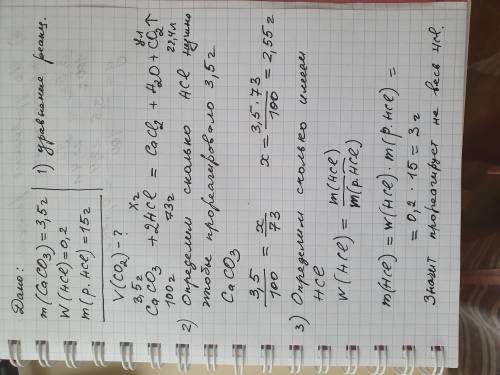 Дано:
m(CaCO₃)=3,5г
W(HCl)=0,2
m(р.HCl)=15г
V(CO₂)-?
1) уравнение реакц.
3,5г xг yл
CaCO₃ + 2HCl = CaCl₂ + H₂O + CO₂↑
100г 73г 22,4л
2) Определим сколько HCl нужно
чтобы прореагировало 3,5г
CaCO₃
3,5/100 = x/73 x = 3,5·73/100 = 2,55г
3) Определим сколько имеем
HCl
W(HCl) = m(HCl)/m(р.HCl)
m(HCl) = W(HCl)·m(р.HCl) =
= 0,2·15 = 3г
Значит прореагирует не весь HCl.